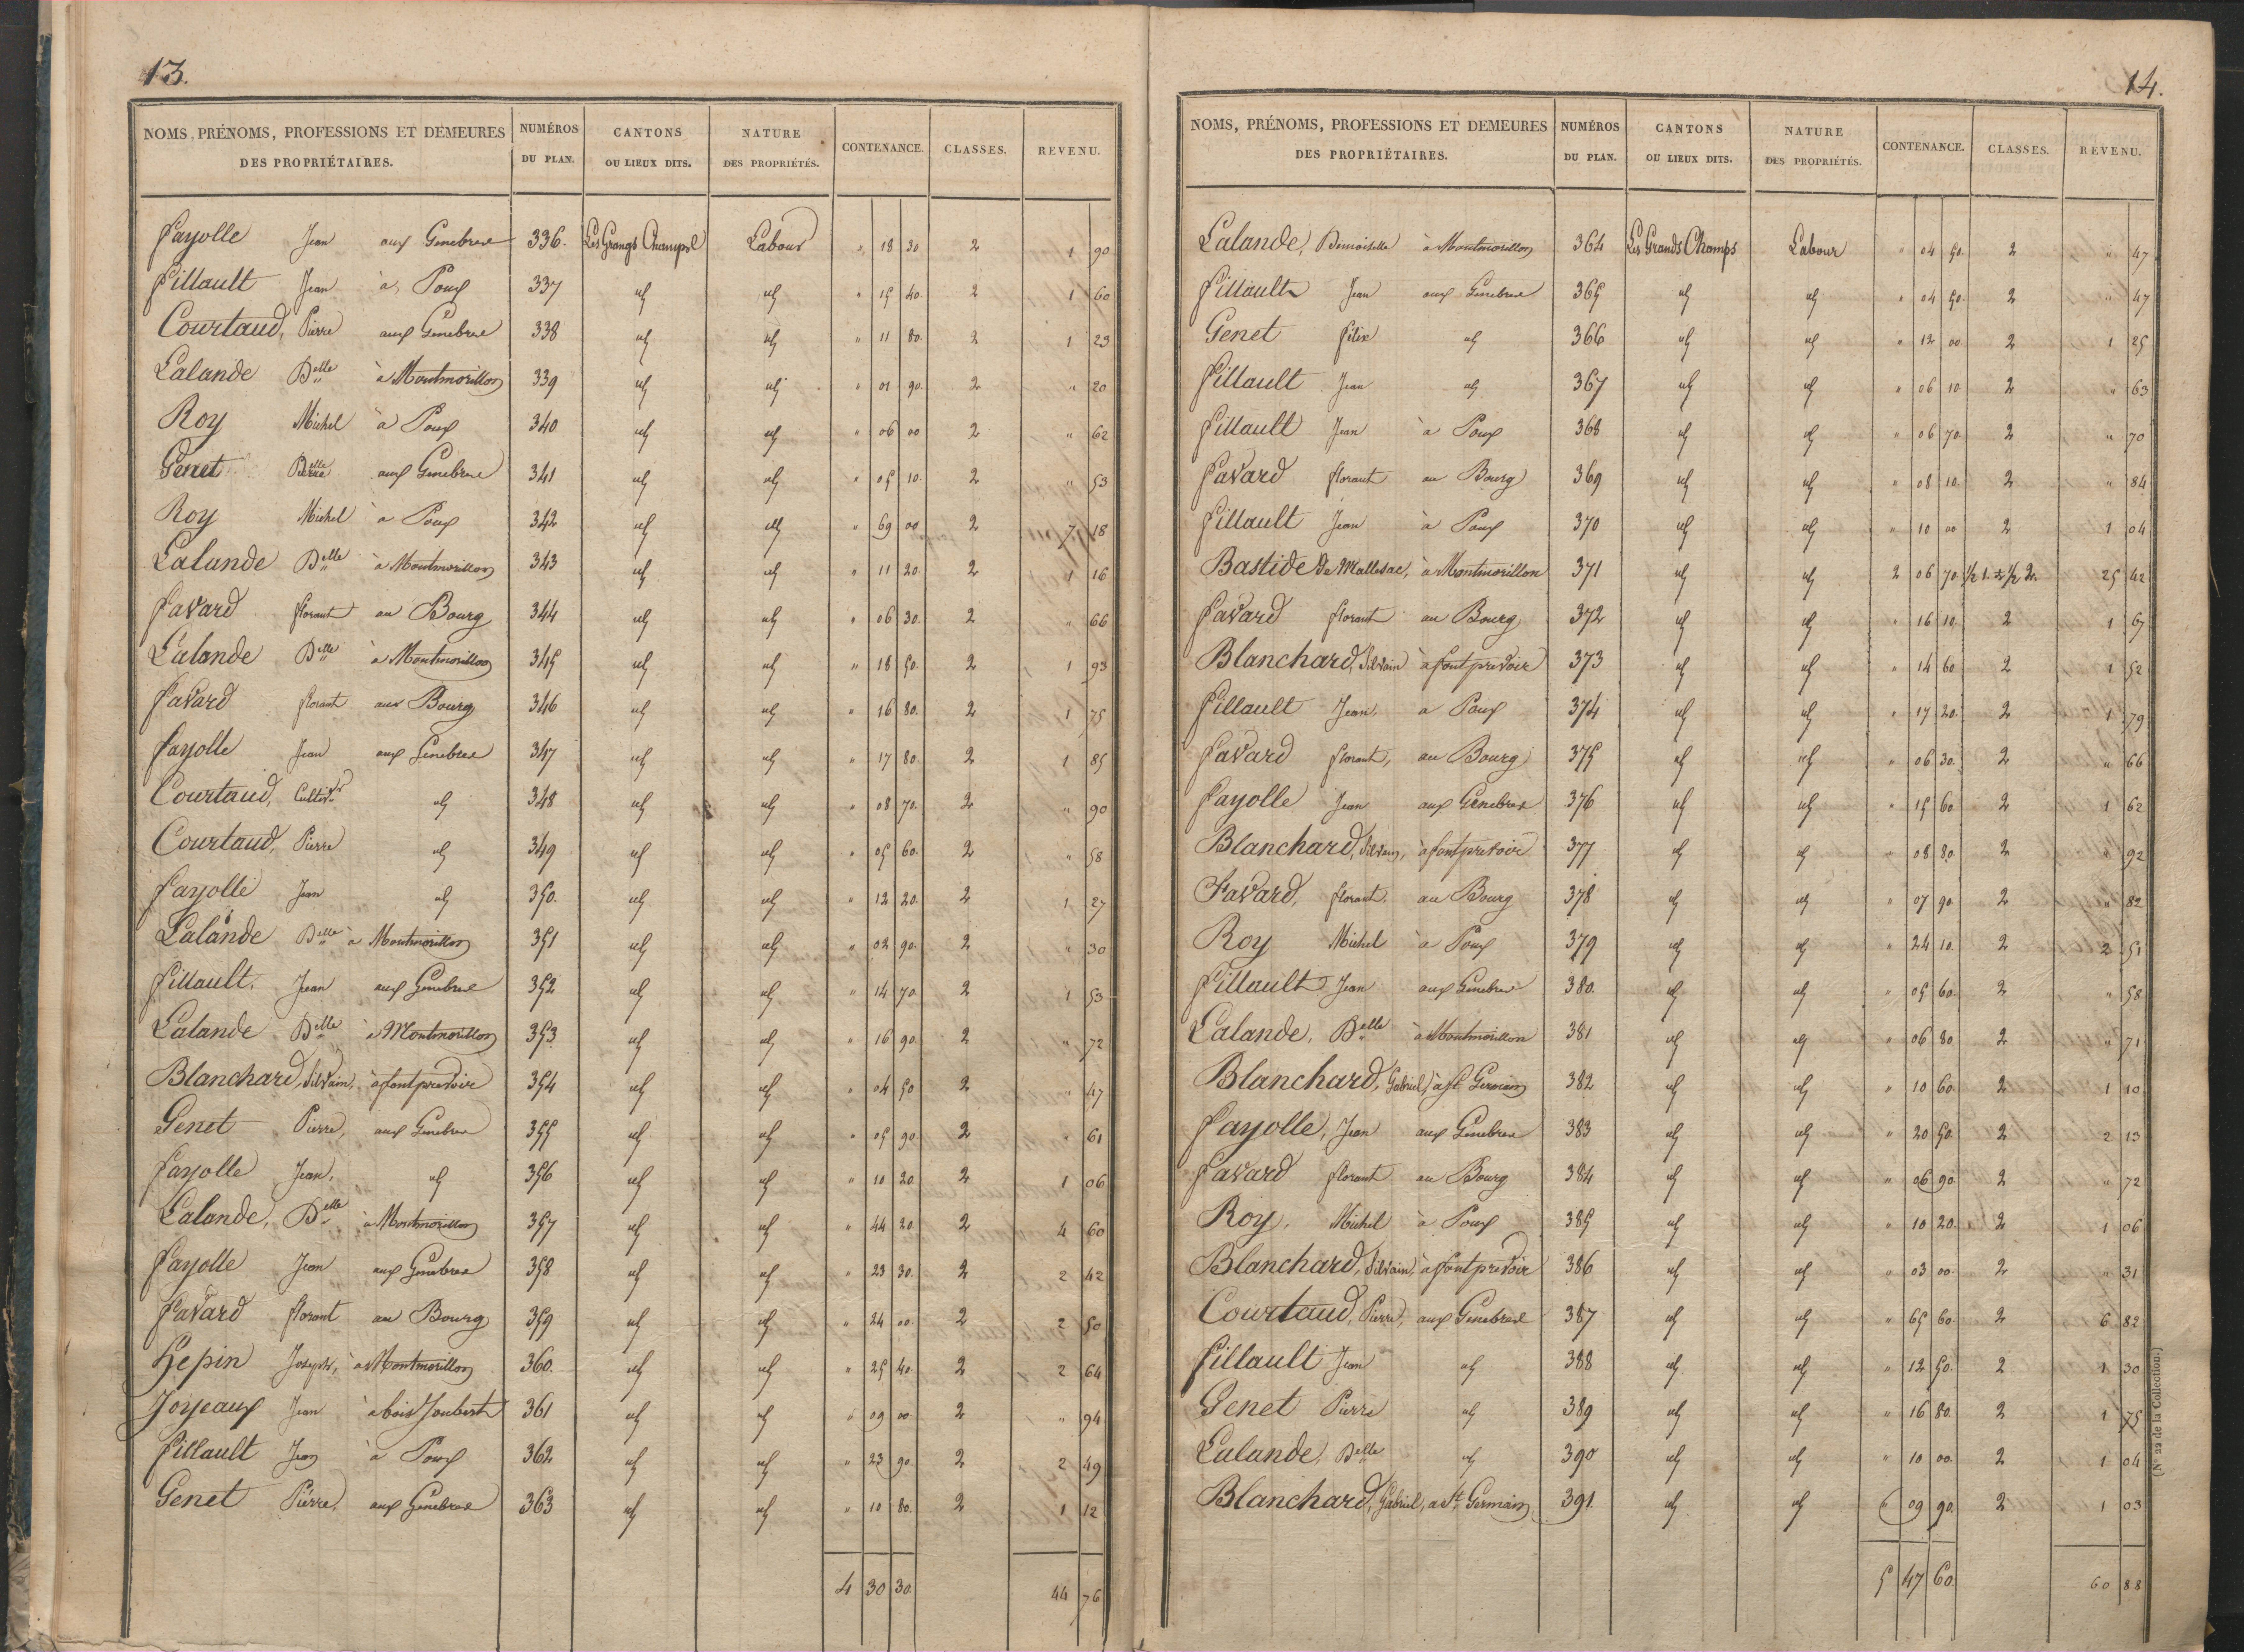 13.
NOMS, PRÉNOMS, PROFESSIONS ET DEMEURES DES PROPRIÉTAIRES. NUMÉROS DU PLAN. CANTONS OU LIEUX DITS. NATURE DES PROPRIÉTÉS. CONTENANCE. CLASSES. REVENU.
Fayolle Jean aux Genebres 336. Les Grands Champs Labour " 18 30 2 1 90
Fillault Jean à Poux 337 id id " 15 40 2 1 60
Courtaud, Pierre aux Genebres 338 id id " 11 80 2 1 23
Lalande Delle à Montmorillon 339 id id " 01 90 2 " 20
Roy Michel à Poux 340 id id " 06 00 2 " 62
Genet aux Genebres 341 id id " 05 10 2 " 53
Roy Michel à Poux 342 id id " 69 00 2 7 18
Lalande Delle à Montmorillon 343 id id " 11 20 2 1 16
Favard florant au Bourg 344 id id " 06 30 2 " 66
Lalande Delle à Montmorillon 345 id id " 18 50 2 1 93
Favard florant au Bourg 346 id id " 16 80 2 1 75
Fayolle Jean aux Genebres 347 id id " 17 80 2 1 85
Courtaud, Cultivr id 348 id id " 08 70 2 " 90
Courtaud, Pierre id 349 id id " 05 60 2 " 58
Fayolle Jean id 350. id id " 12 20 2 1 27
Lalande Delle à Montmorillon 351 id id " 02 90 2 " 30
Fillault, Jean aux Genebres 352 id id " 14 70 2 1 53
Lalande Delle à Montmorillon 353 id id " 16 90 2 " 72
Blanchard, Silvain, à fontprevoir 354 id id " 04 50 2 " 47
Genet Pierre, aux Genebres 355 id id " 05 90 2 " 61
Fayolle Jean, id 356 id id " 10 20 2 1 06
Lalande, Delle à Montmorillon 357 id id " 44 20 2 4 60
Fayolle Jean aux Genebres 358 id id " 23 30 2 2 42
Favard florant au Bourg 359 id id " 24 00 2 2 50
Hepin Joseph, à Montmorillon 360. id id " 25 40 2 2 64
Joyeaux Jean à bois Joubert 361 id id " 09 00 2 " 94
Fillault Jean à Poux 362 id id " 23 90 2 2 49
Genet Pierre, aux Genebres 363 id id " 10 80 2 1 12
4 30 30 44 76
14.
NOMS, PRÉNOMS, PROFESSIONS ET DEMEURES DES PROPRIÉTAIRES. NUMÉROS DU PLAN. CANTONS OU LIEUX DITS. NATURE DES PROPRIÉTÉS. CONTENANCE. CLASSES. REVENU.
Lalande, Demoiselle à Montmorillon 364 Les Grands Champs Labour " 04 50 2 " 47
Fillault Jean aux Genebres 365 id id " 04 50 2 " 47
Genet félix id 366 id id " 12 00 2 1 25
Fillault Jean id 367 id id " 06 10 2 " 63
Fillault Jean à Poux 368 id id " 06 70 2 " 70
Favard florant au Bourg 369 id id " 08 10 2 " 84
Fillault Jean à Poux 370 id id " 10 00 2 1 04
Bastide De Mallesac, à Montmorillon 371 id id 2 06 70 1/2 1. et 1/2 2. 25 42
Favard florant au Bourg 372 id id " 16 10 2 1 67
Blanchard, Silvain à fontprevoir 373 id id " 14 60 2 1 52
Fillault Jean, à Poux 374 id id " 17 20 2 1 79
Favard florant, au Bourg 375 id id " 06 30 2 " 66
Fayolle Jean aux Genebres 376 id id " 15 60 2 1 62
Blanchard, Silvain, à fontprevoir 377 id id " 08 80 2 " 92
Favard, florant, au Bourg 378 id id " 07 90 2 " 82
Roy Michel à Poux 379 id id " 24 10 2 2 51
Fillault Jean aux Genebres 380. id id " 05 60 2 " 58
Lalande, Delle à Montmorillon 381 id id " 06 80 2 " 71
Blanchard, Gabriel, à St Germain 382 id id " 10 60 2 1 10
Fayolle, Jean aux Genebres 383 id id " 20 50 2 2 13
Favard florant au Bourg 384 id id " 06 90 2 " 72
Roy, Michel à Poux 385 id id " 10 20 2 1 06
Blanchard, Silvain, à fontprevoir 386 id id " 03 00 2 " 31
Courtaud, Pierre, aux Genebres 387 id id " 65 60 2 6 82
Fillault Jean id 388 id id " 12 50 2 1 30
Genet Pierre id 389 id id " 16 80 2 1 75
Lalande, Delle id 390 id id " 10 00 2 1 04
Blanchard, Gabriel, à St Germain 391. id id " 09 90 2 1 03
5 47 60 60 88
(N° 22 de la Collection.)